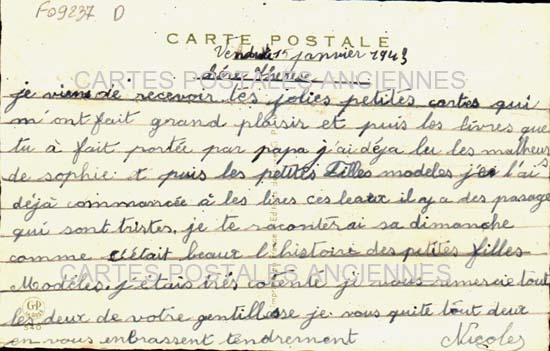 F09237 D
CARTE POSTALE
Vendredi 15 janvier 1943
CARTES POSTALES ANCIENNES
je viens de recevoir tes jolies petites cartes qui
m'ont fait grand plaisir et puis les livres que
tu à fait portée par papa j'ai déja lu les malheurs
de sophie. et puis les petites filles modèles je l'ai
déjà commancée à les lires ces beaux il y a des pasage
qui sont tristes, je te raconterai sa dimanche
comme c'était beaux l'histoire des petites filles
CARTES POSTALES ANCIENNES
Modèles, j'étais très contente je vous remercie tout
les deux de votre gentillesse je vous quite tout deux
en vous enbrassent tendrement
Nicoles